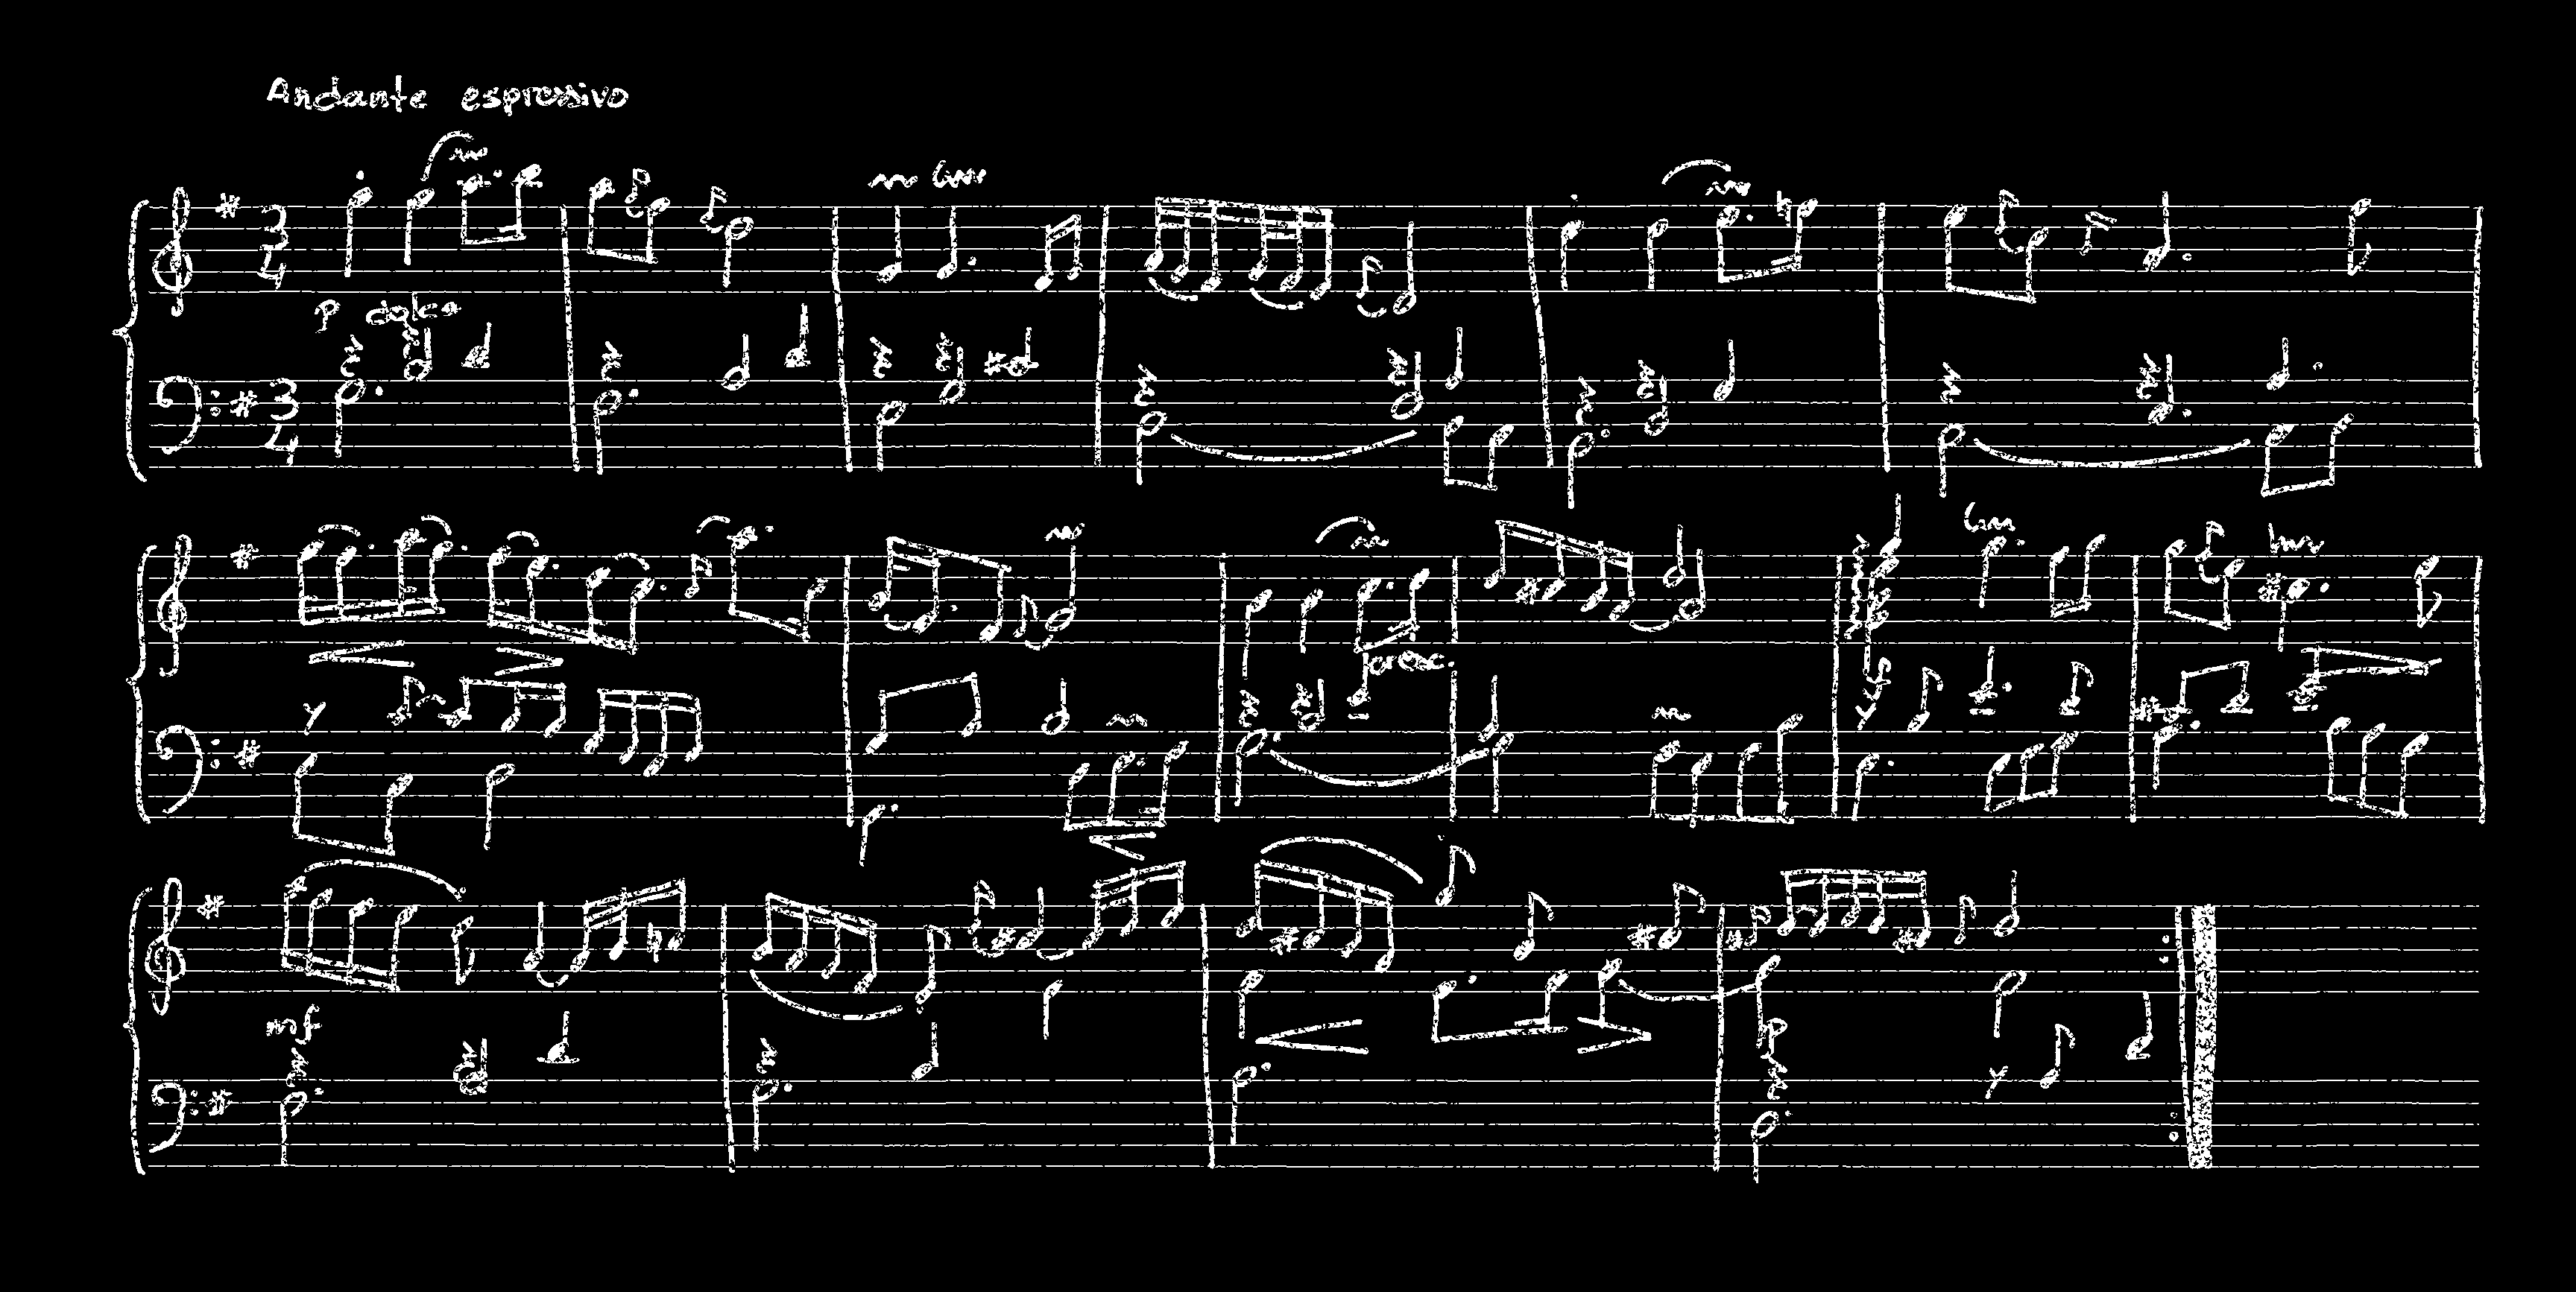 Andante espressivo
3 4
p dolce
3 4
cresc.
mf
p